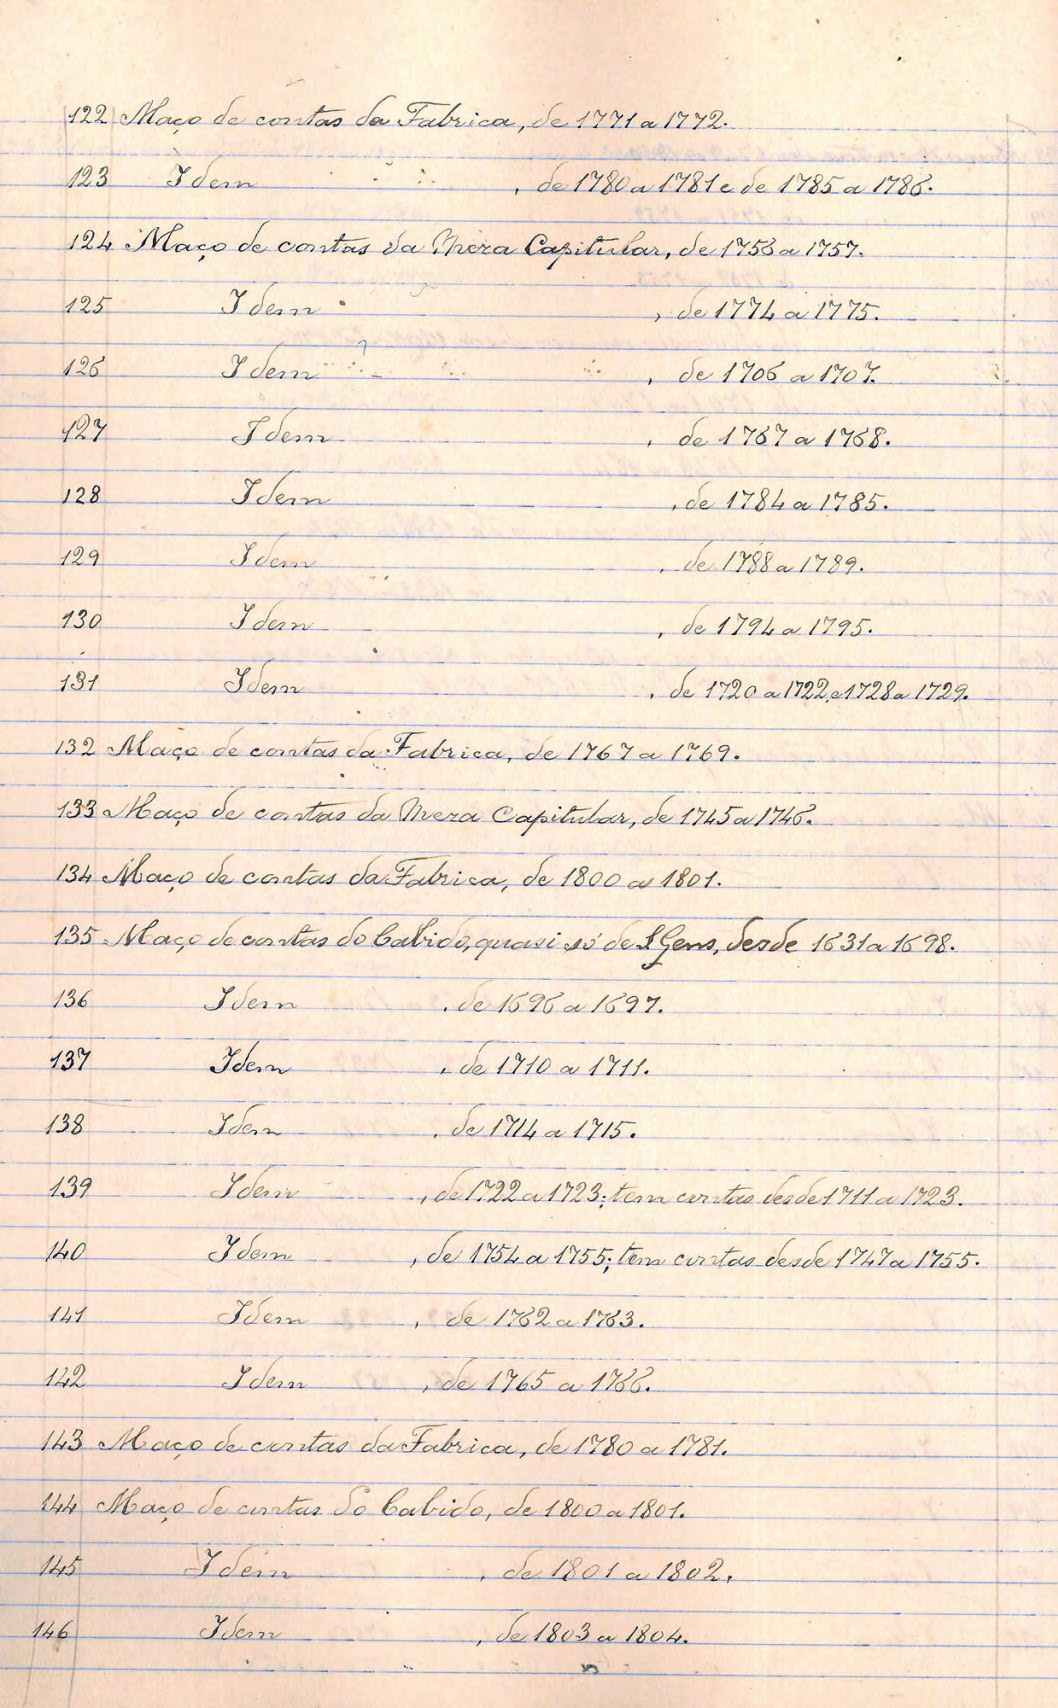 122 Maço de contas da Fabrica, de 1771 a 1772.
123 Idem , de 1780 a 1781 e de 1785 a 1786.
124 Maço de contas da Meza Capitular, de 1756 a 1757.
125 Idem , de 1774 a 1775.
126 Idem , de 1706 a 1707.
127 Idem , de 1767 a 1768.
128 Idem , de 1784 a 1785.
129 Idem , de 1788 a 1789.
130 Idem , de 1794 a 1795.
131 Idem , de 1720 a 1722, e 1728 a 1729.
132 Maço de contas da Fabrica, de 1767 a 1769.
133 Maço de contas da Meza Capitular, de 1745 a 1746.
134 Maço de contas da Fabrica, de 1800 a 1801.
135 Maço de contas do Cabido, quasi só de S Gens, desde 1631 a 1698.
136 Idem , de 1696 a 1697.
137 Idem , de 1710 a 1711.
138 Idem , de 1714 a 1715.
139 Idem , de 1722 a 1723; tem contas desde 1711 a 1723.
140 Idem , de 1754 a 1755; tem contas desde 1747 a 1755.
141 Idem , de 1762 a 1763.
142 Idem , de 1765 a 1766.
143 Maço de contas da Fabrica, de 1780 a 1781.
144 Maço de contas do Cabido, de 1800 a 1801.
145 Idem , de 1801 a 1802.
146 Idem , de 1803 a 1804.